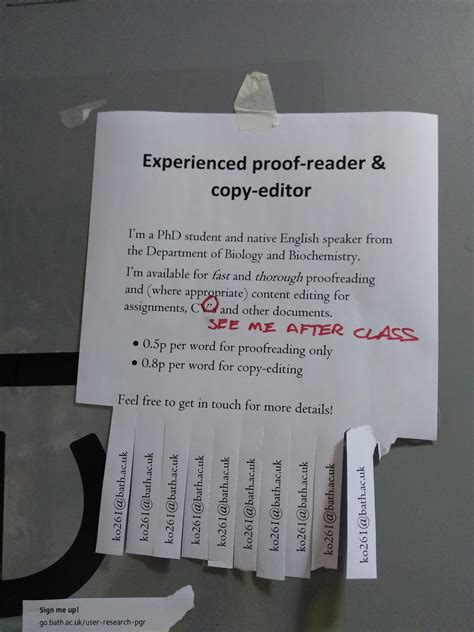 Experienced proof-reader &
copy-editor
I'm a PhD student and native English speaker from
the Department of Biology and Biochemistry.
I'm available for fast and thorough proofreading
and (where appropriate) content editing for
assignments, CV's and other documents.
SEE ME AFTER CLASS
• 0.5p per word for proofreading only
• 0.8p per word for copy-editing
Feel free to get in touch for more details!
ko261@bath.ac.uk
ko261@bath.ac.uk
ko261@bath.ac.uk
ko261@bath.ac.uk
ko261@bath.ac.uk
ko261@bath.ac.uk
ko261@bath.ac.uk
ko261@bath.ac.uk
ko261@bath.ac.uk
Sign me up!
go.bath.ac.uk/user-research-pgr